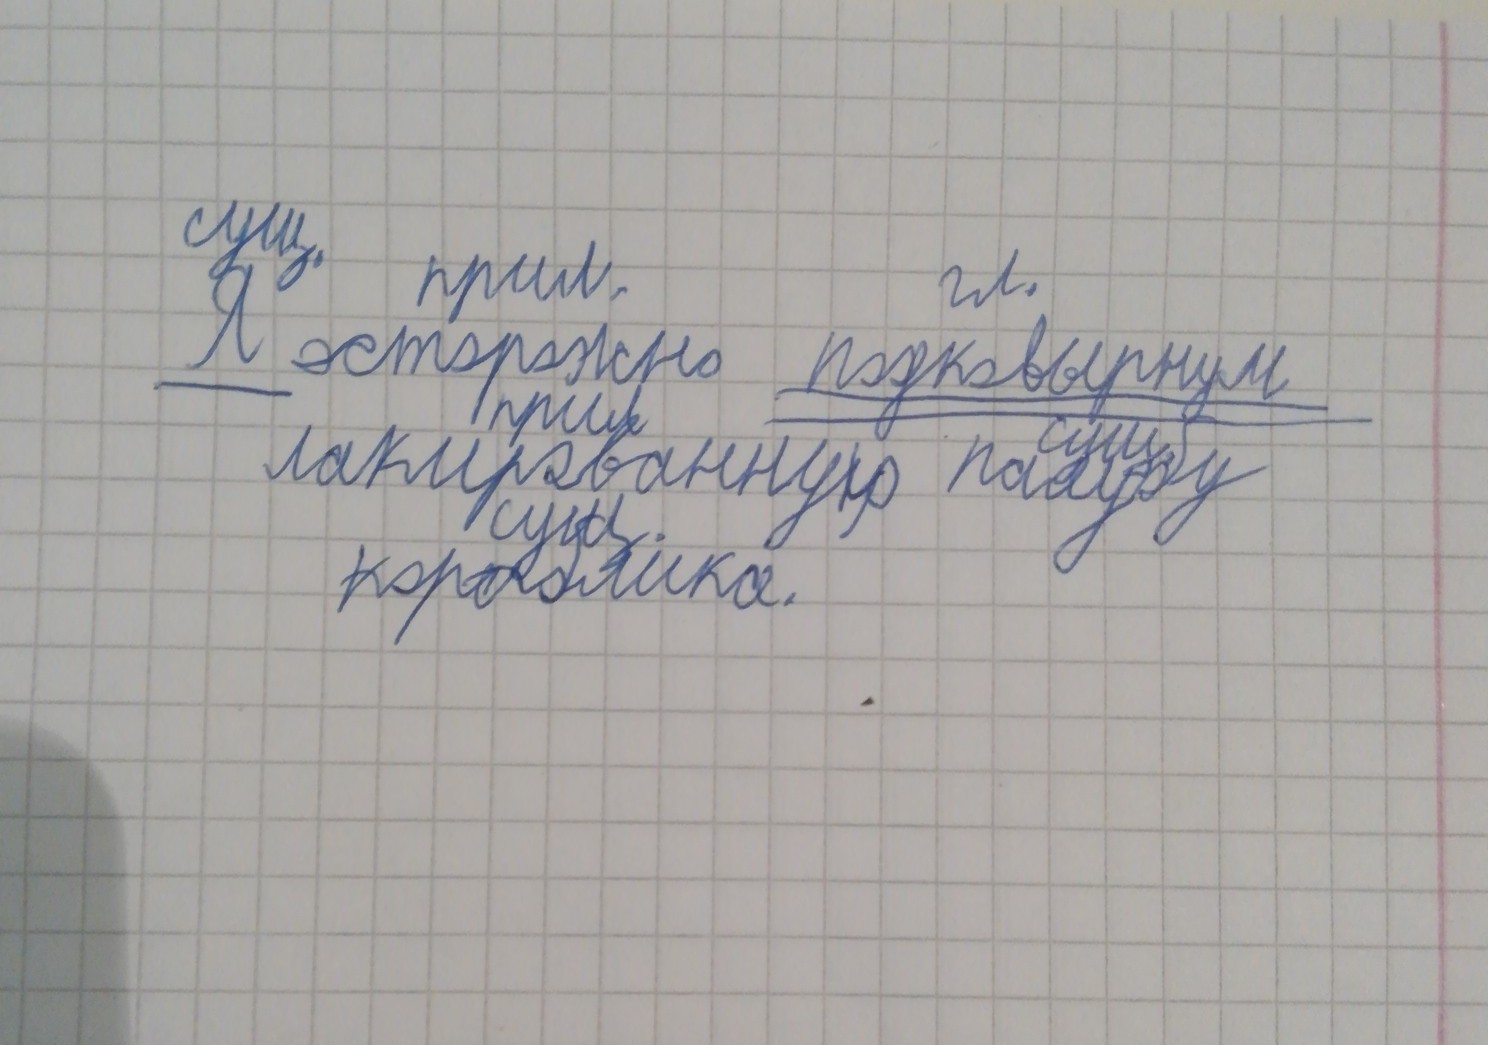 сущ. прил. гл.
Я осторожно подковырнул
прил сущ.
лакированную палубу
сущ.
кораблика.